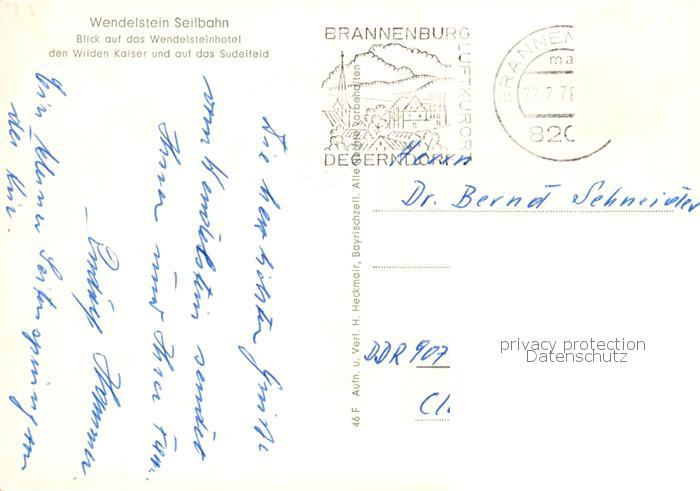 Wendelstein Seilbahn
Blick auf das Wendelsteinhotel
den Wilden Kaiser und auf das Sudelfeld
BRANNENBURG
LUFTKURORT
DEGERNDORF
BRANNEN
22.2.78
820
Die herzlichsten Grüße
vom Wendelstein sendet
Ihnen und Ihrer Fam.
Rudolf
Ein kleiner Seitensprung von
der Kur.
46 F Aufn. u. Verl. H. Heckmair, Bayrischzell. Alle Rechte vorbehalten
Herrn
Dr. Bernd Schneider
DDR 907
Cl
privacy protection
Datenschutz